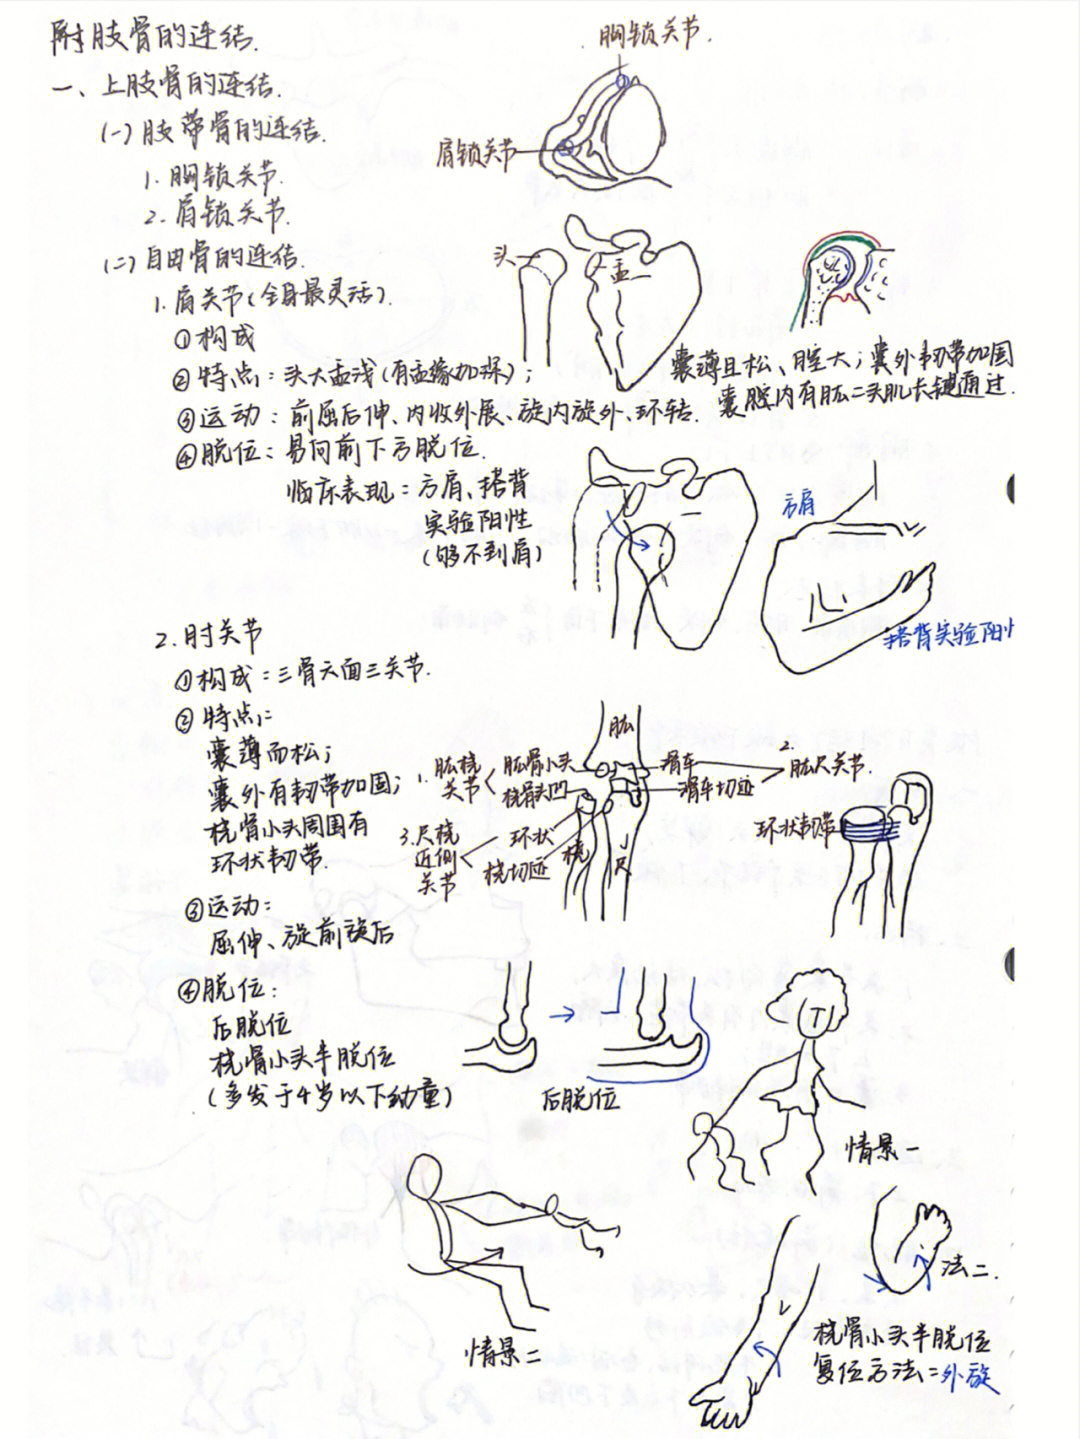 附肢骨的连结.
一、上肢骨的连结.
(一)肢带骨的连结.
1. 胸锁关节.
2. 肩锁关节.
(二)自由骨的连结.
1. 肩关节(全身最灵活).
①构成
②特点:头大盂浅(有盂缘加深);
③运动:前屈后伸、内收外展、旋内旋外、环转.
④脱位:易向前下方脱位.
临床表现:方肩、搭背
实验阳性
(够不到肩)
胸锁关节.
肩锁关节
头
盂
囊薄且松、腔大;囊外韧带加固
囊腔内有肱二头肌长腱通过.
方肩
搭背实验阳
2. 肘关节
①构成:三骨六面三关节.
②特点:
囊薄而松;
囊外有韧带加固;
桡骨小头周围有
环状韧带.
③运动:
屈伸、旋前旋后
④脱位:
后脱位
桡骨小头半脱位
(多发于4岁以下幼童)
肱
1. 肱桡关节
肱骨小头
桡骨头凹
滑车
滑车切迹
2. 肱尺关节.
3. 尺桡近侧关节
环状
桡切迹
桡
尺
环状韧带
后脱位
情景一
情景二
法二.
桡骨小头半脱位
复位方法:外旋